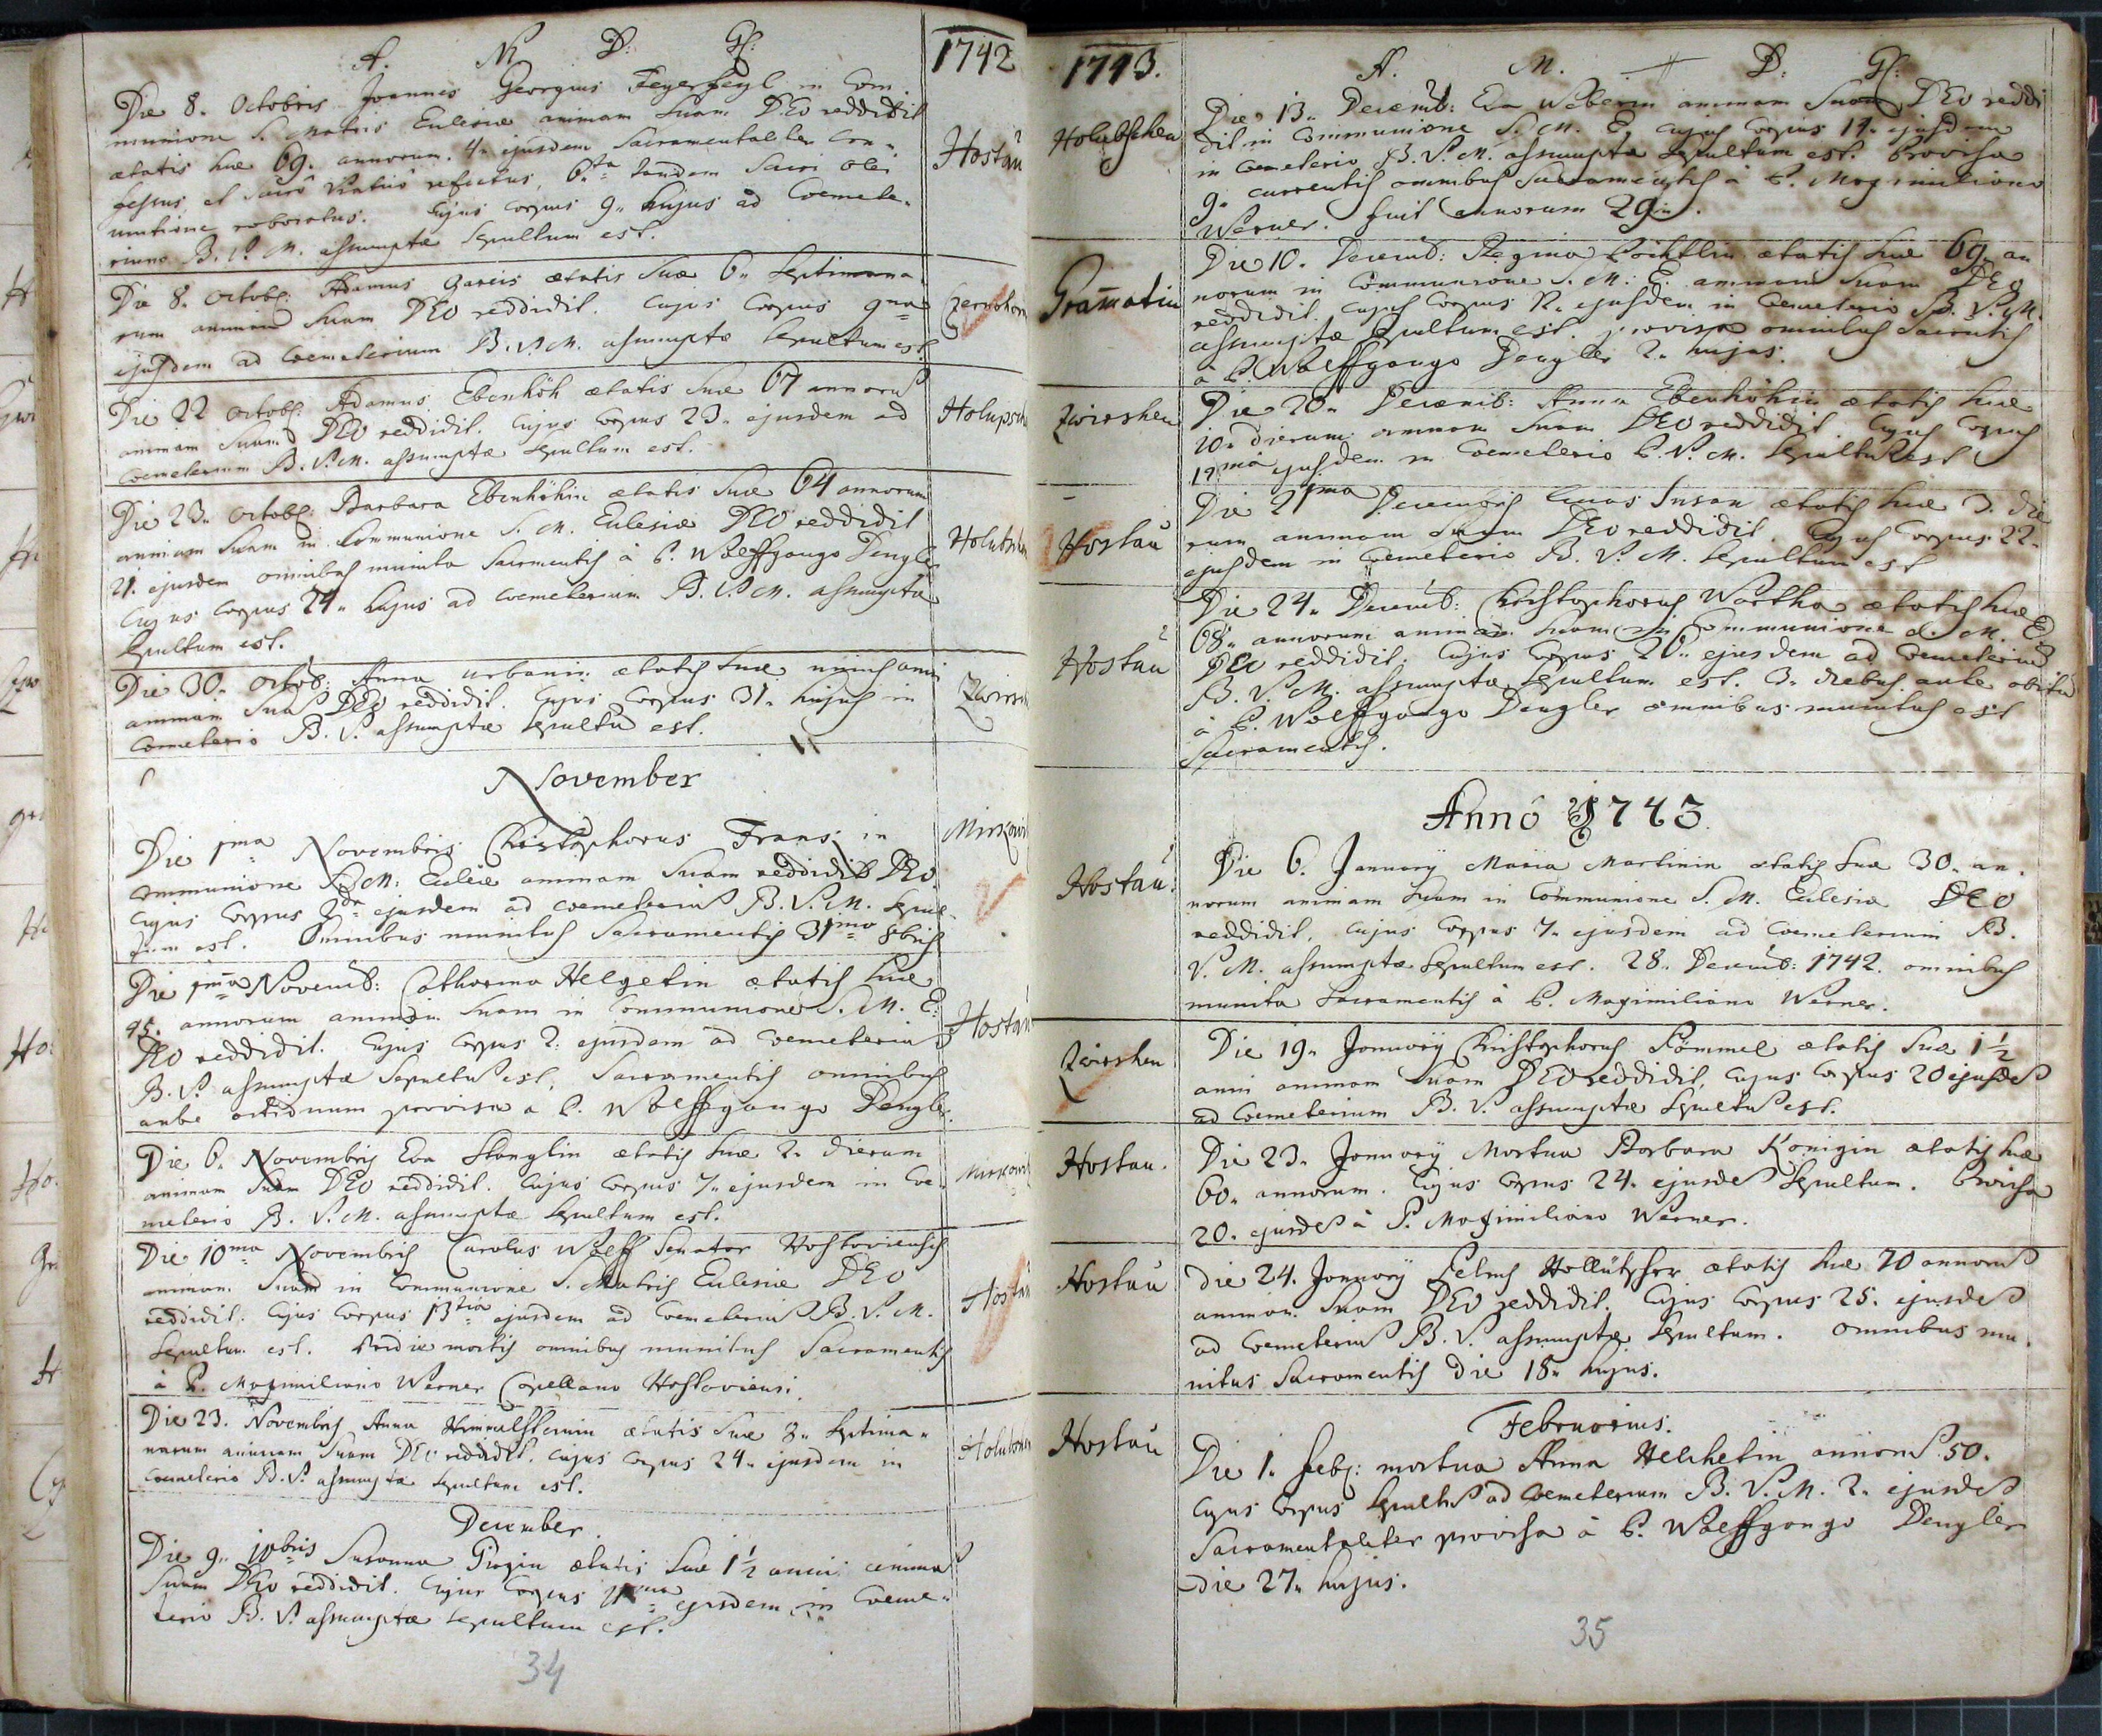 A. M D: Gl:
1742
Die 8. Octobris Joannes Georgius Feyerfeyl in Com
munione S. Matris Eclesiæ animam Suam DEO reddidit
ætatis suæ 69. annorum. 4. ejusdem Sacramentaliter Con-
fessus, et Sacro Viatico refectus, 6.ta tandem Sacri olei
unctione roboratus. Cujus Corpus 9. hujus ad Coemete-
rium B. V. M. assumptæ Sepultum est.
Hostau
Die 8. Octob: Adamus Gareis ætatis Suæ 6. Septimana
rum animam Suam DEO reddidit. Cujus Corpus 9na
ejusdem ad Coemeterium B. V. M. assumptæ Sepultum est
Die 22 Octob: Adamus Ebenhöh ætatis Suæ 67 annoru
animam Suam DEO reddidit. Cujus Corpus 23. ejusdem ad
Coemeterium B. V. M. assumptæ Sepultum est.
Die 23. Octob: Barbara Ebenhöhin ætatis Suæ 64 annorum
animam Suam in Communione S. M. Eclesiæ DEO reddidit
21. ejusdem omnibus munita Sacramentis à P. Wolffgango Dengler
Cujus Corpus 24. hujus ad Coemeterium B. V. M. assumptæ
Sepultum est.
Die 30. Octob: Anna Urbanin ætatis Suæ unius anni
animam Sua DEO reddidit. Cujus Corpus 31. hujus in
Cometerio B. V. assumptæ Sepultu est.
November
Die 1ma Novembris Christophorus Frans in
Communione S. M. Eclæ animam Suam reddidit DEO
Cujus Corpus 2da ejusdem ad Coemeteriu B. V. M. Sepul-
tum est. Omnibus munitus Sacramentis 31mo 8bris
Die 1ma Novemb: Catharina Helgetin ætatis Suæ
45. annorum animam Suam in Communione S. M. E.
DEO reddidit. Cujus Corpus 2. ejusdem ad Coemeteriu
B. V. assumptæ Sepultu est, Sacramentis omnibus
provisa a P. Wolffgango Dengler.
Hostau
Die 6. Novembris Eva Stanglin ætatis Suæ 2. dierum
animam Suam DEO reddidit. Cujus Corpus 7. ejusdem in Coe-
meterio B. V. M. assumptæ Sepultum est.
Die 10ma Novembris Carolus Wolff Senator Hostoviensis
animam Suam in Communione S. Matris Eclesiæ DEO
reddidit. Cujus Corpus 13tia ejusdem ad Coemeteriu B. V. M.
Sepultum est. Pridie mortis omnibus munitus Sacramentis
à P. Maximiliano Werner Capellano Hostoviensi.
Hostau
Die 23. Novembris Anna Himmelsternin ætatis Suæ 3. Septima-
narum animam Suam DEO reddidit. Cujus Corpus 24. ejusdem in
Coemeterio B. V. assumptæ Sepultum est.
December.
Die 9. 10bris Susanna Pirgin ætatis Suæ 1½ anni anima
Suam DEO reddidit. Cujus Corpus ejusdem in Coeme-
terio B. V. assumptæ Sepultum est.
34
1743.
A. M. D: Gl:
Holubschen
Die 13. Decemb: Eva Weberin animam Suam DEO reddi
dit in Communione S. M. E, cujus Corpus 14. ejusdem
in Cemeterio B. V. M. assumptæ Sepultum est. Provisa
9. currentis omnibus Sacramentis à P. Maximiliano
Werner. fuit annorum 29.
Gramatin
Die 10. Decemb: Regina ætatis Suæ 69. an
norum in Communione S. M. E. animam Suam DEO
reddidit. Cujus Corpus 12. ejusdem in Coemeterio B. V. M.
assumptæ Sepultum est. provisa omnibus Sacrntis
à P. Wolffgango Dengler 2. hujus.
Zwirshen
Die 20. Decemb: Anna Ebenhöhin ætatis Suæ
10. dierum animam Suam DEO reddidit. Cujus Corpus
ejusdem in Coemeterio B. V. M. Sepultu est
Hostau
Die 21ma Decembris Lucas Susan ætatis Suæ 3. die
rum animam Suam DEO reddidit. Cujus Corpus 22.
ejusdem in Coemeterio B. V. M. Sepultum est
Hostau
Die 24. Decemb: Christophorus Wartha ætatis Suæ
68. annorum animam Suam in Communione S. M. E.
DEO reddidit. Cujus Corpus 26. ejusdem ad Coemeteriu
B. V. M. assumptæ Sepultum est. 3. diebus ante obitu
à P. Wolffgango Dengler omnibus munitus est
Sacramentis.
Anno 1743
Hostau.
Die 6. January Maria Martinin ætatis Suæ 30. an-
norum animam Suam in Communione S. M. Eclesiæ DEO
reddidit, Cujus Corpus 7. ejusdem ad Coemeterium B.
V. M. assumptæ Sepultum est. 28. Decemb: 1742. omnibus
munita Sacramentis à P. Maximiliano Werner.
Zwirshen
Die 19. January Christophorus Pömmel ætatis Suæ 1½
anni animam Suam DEO reddidit, Cujus Corpus 20 ejusde
ad Coemeterium B. V. assumptæ Sepultu est.
Hostau.
Die 23. January Mortua Barbara Königin ætatis Suæ
60. annorum. Cujus Corpus 24. ejusde Sepultum. Provisa
20. ejusde à P. Maximiliano Werner.
Hostau
Die 24. January Petrus Hollütscher ætatis Suæ 70 annoru
animam Suam DEO reddidit. Cujus Corpus 25. ejusde
ad Coemeteriu B. V. assumptæ Sepultum. Omnibus mu-
nitus Sacramentis Die 18. hujus.
Februarius.
Hostau
Die 1. Feb: mortua Anna Helchetin annoru 50.
Cujus Corpus Sepultu ad Coemeterium B. V. M. 2. ejusde
Sacramentaliter provisa à P. Wolffgango Dengler
Die 27. hujus.
35